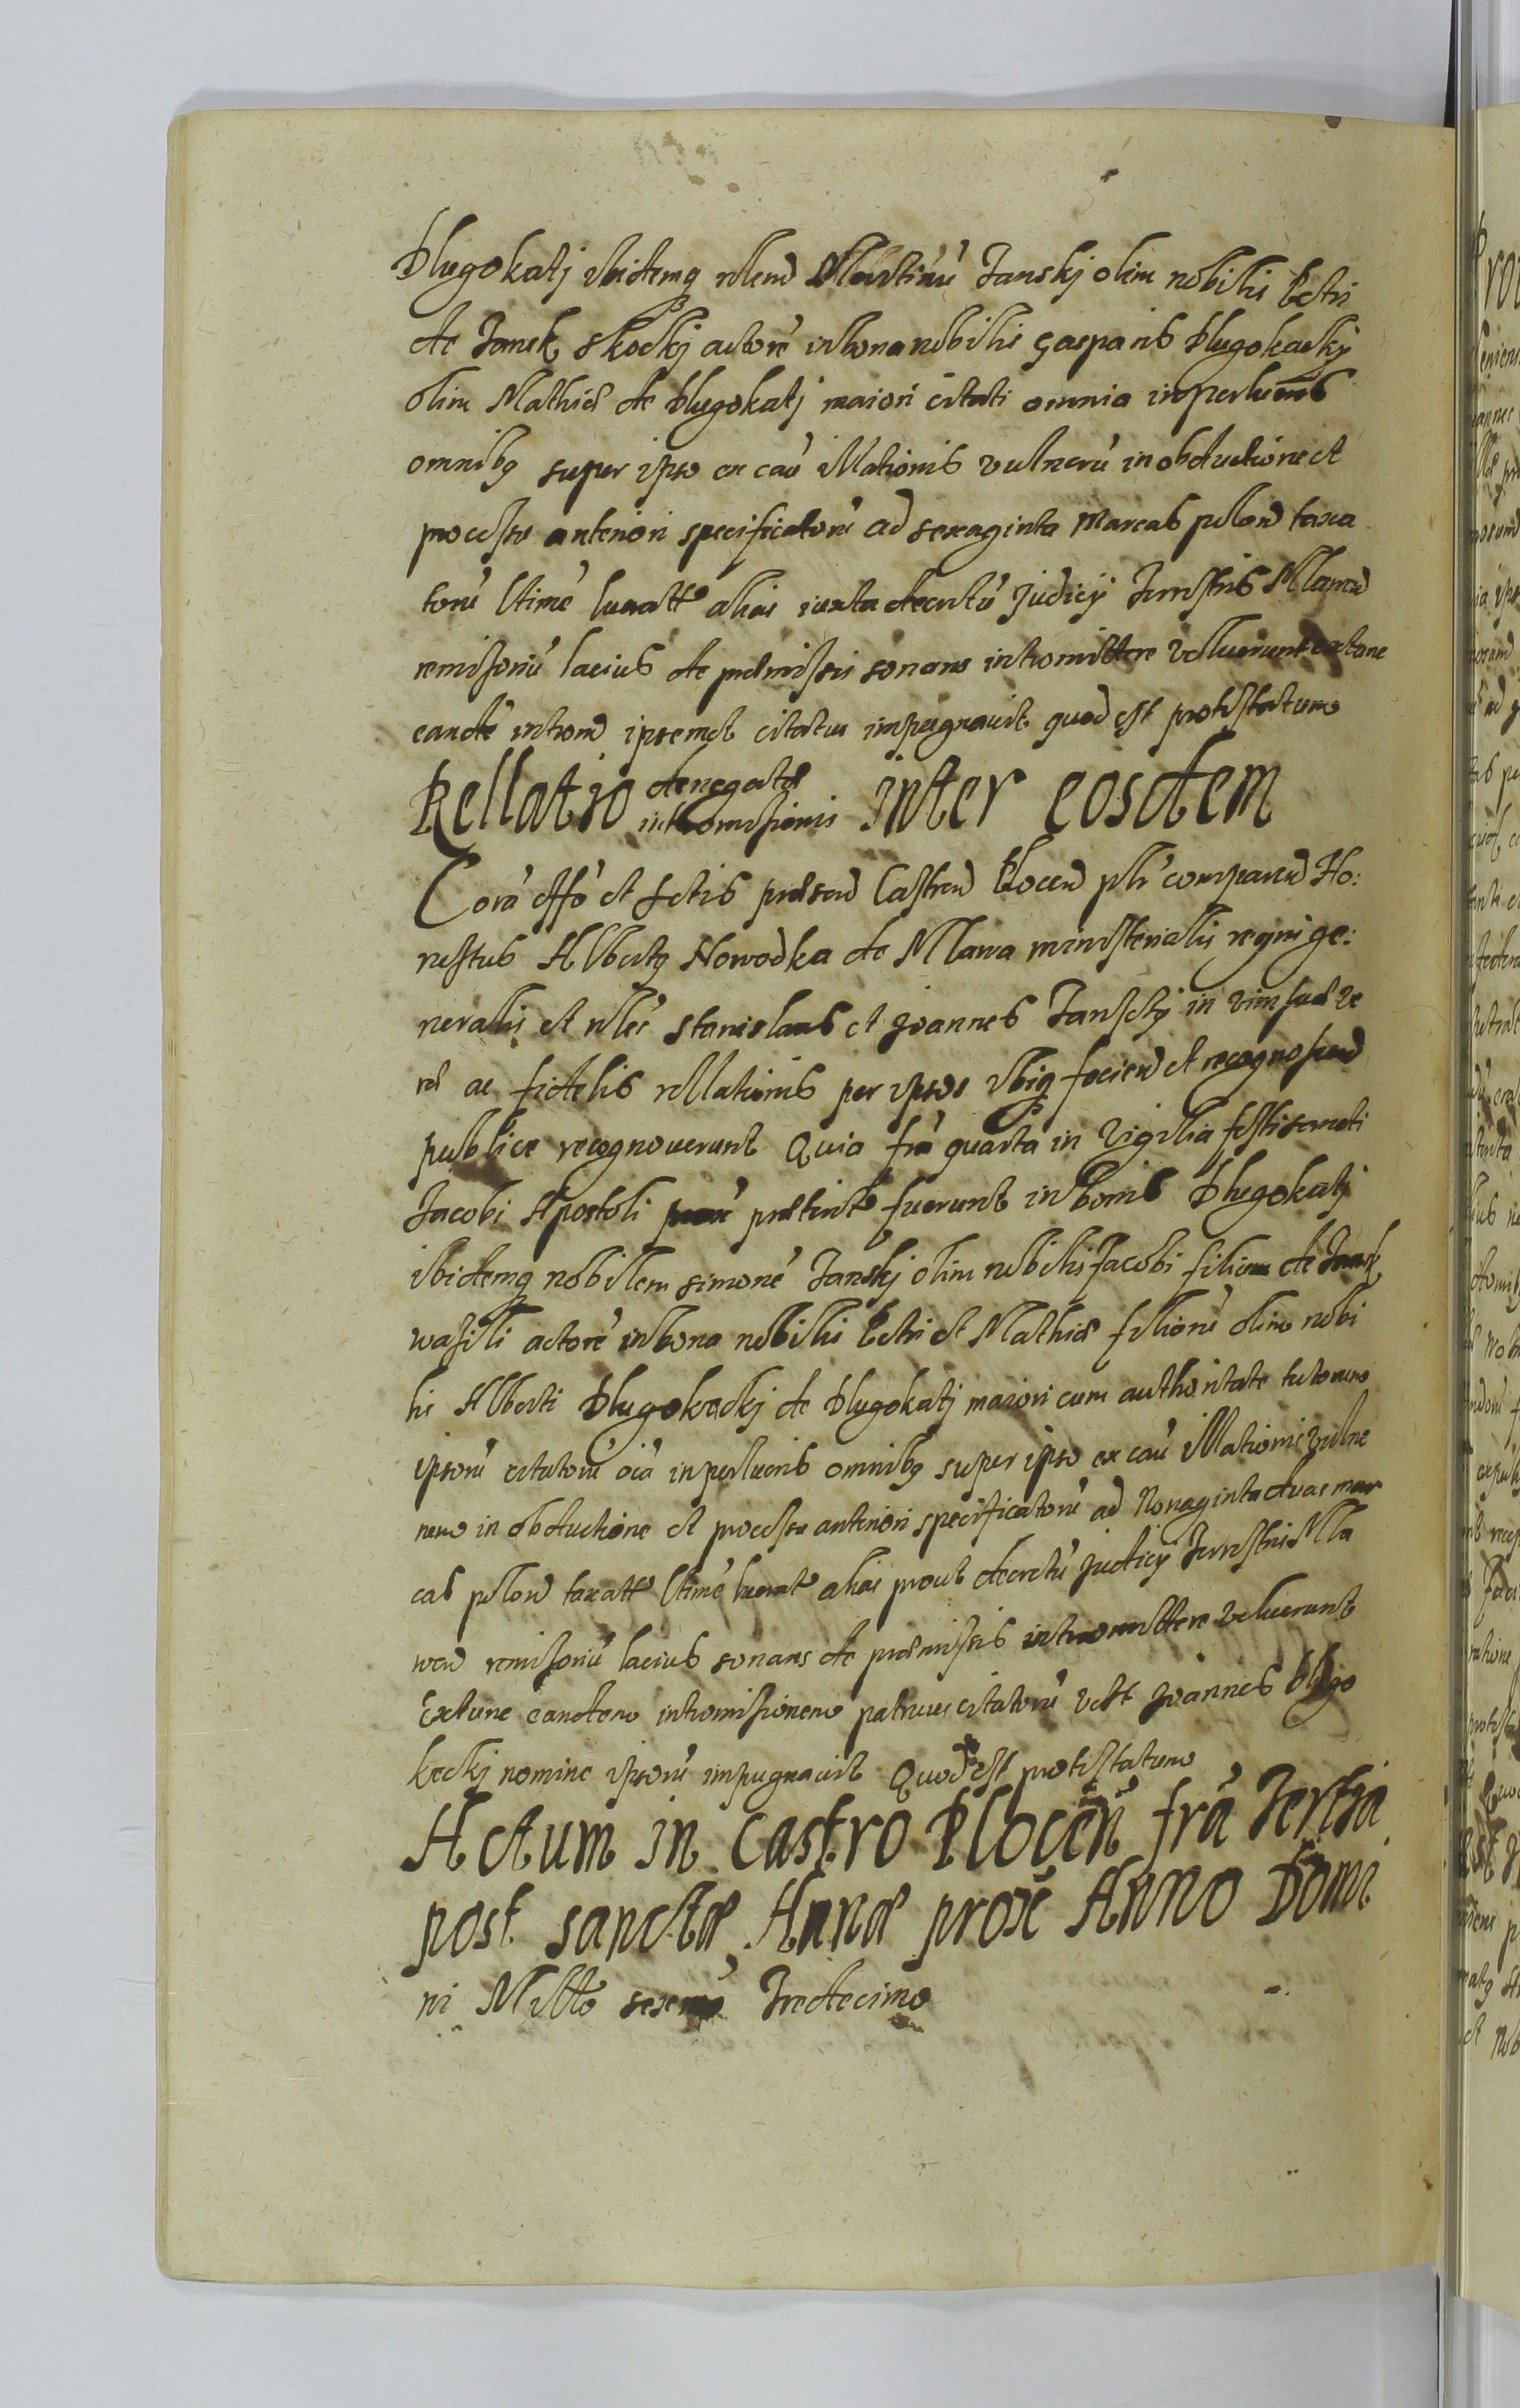 Dlugokąti ibidemq nlem Martinu Janski olim nobilis Petri
de Janik Skocki actore in bona nobilis Gasparis Dlugokaczki
olim Mathiæ de Dlugokąti maiori citati omnia in perlucris
omnibq super ipso ex cau illationis vulneru in obductione et
processu anteriori specificatoru ad sexaginta Marcas polon taxa
toru ltime luctatt alias iuxta decretu Judicij Terrestris Mlawen
remissoriu lacius de præmissis sonans intromittere volluerunt extunc
eande introm ipsemet citatus impugnauit quod est protestatum
Rellatio denegatæ intromissionis inter eosdem
Cora offo et Actis præsen Castren Plocen plr comparen Ho:
nestus Albertq Nowodka de Mlawa ministerialis regni ge:
neralis et nles Stanislaus et Joannes Janscÿ in vim suæ ve
ræ ac fidelis rellationis per ipsos ibiq facien et recognoscen
publice recognouerunt Quia fra quarta in Vigilia festi sancti
Jacobi Apostoli præterit fuerunt in bonis Dlugokąti
ibidemq nobilem Simone Janski olim nobilis Jacobi filium de Janik
wasili actore in bona nobilis Petri et Mathiæ filioru olim nobi
lis Alberti Dlugokącki de Dlugokąti maiori cum authoritate tutorum
ipsoru citatoru oia in perlucris omnibq super ipso ex cau illationis vulne
rum in obductione et processu anteriori specificatoru ad Nonaginta duas mar
cas polon taxatt ltime luctat alias prout decretu Judicij Terrestris Mla
wen remissoriu lacius sonans de præmissis intromittere voluerunt
Extunc eandem intromissionem patruus citatoru vdlt Joannes Dlugo
kecki nomine ipsoru impugnauit Quod est protestatum
Actum in Castro Plocen fra Tertia
post sanctæ Annæ prox Anno Domi
ni Millo sexemo Tredecimo